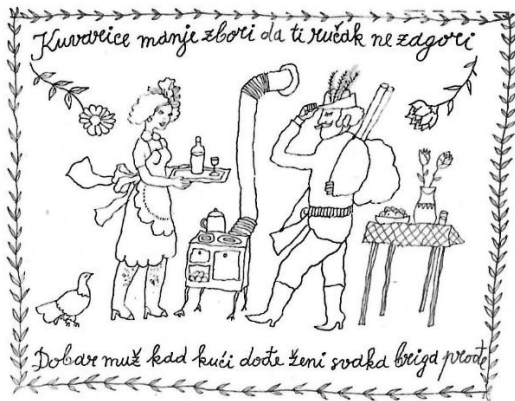 Kuvarice manje zbori da ti ručak ne zagori
Dobar muž kad kući dođe ženi svaka briga prođe